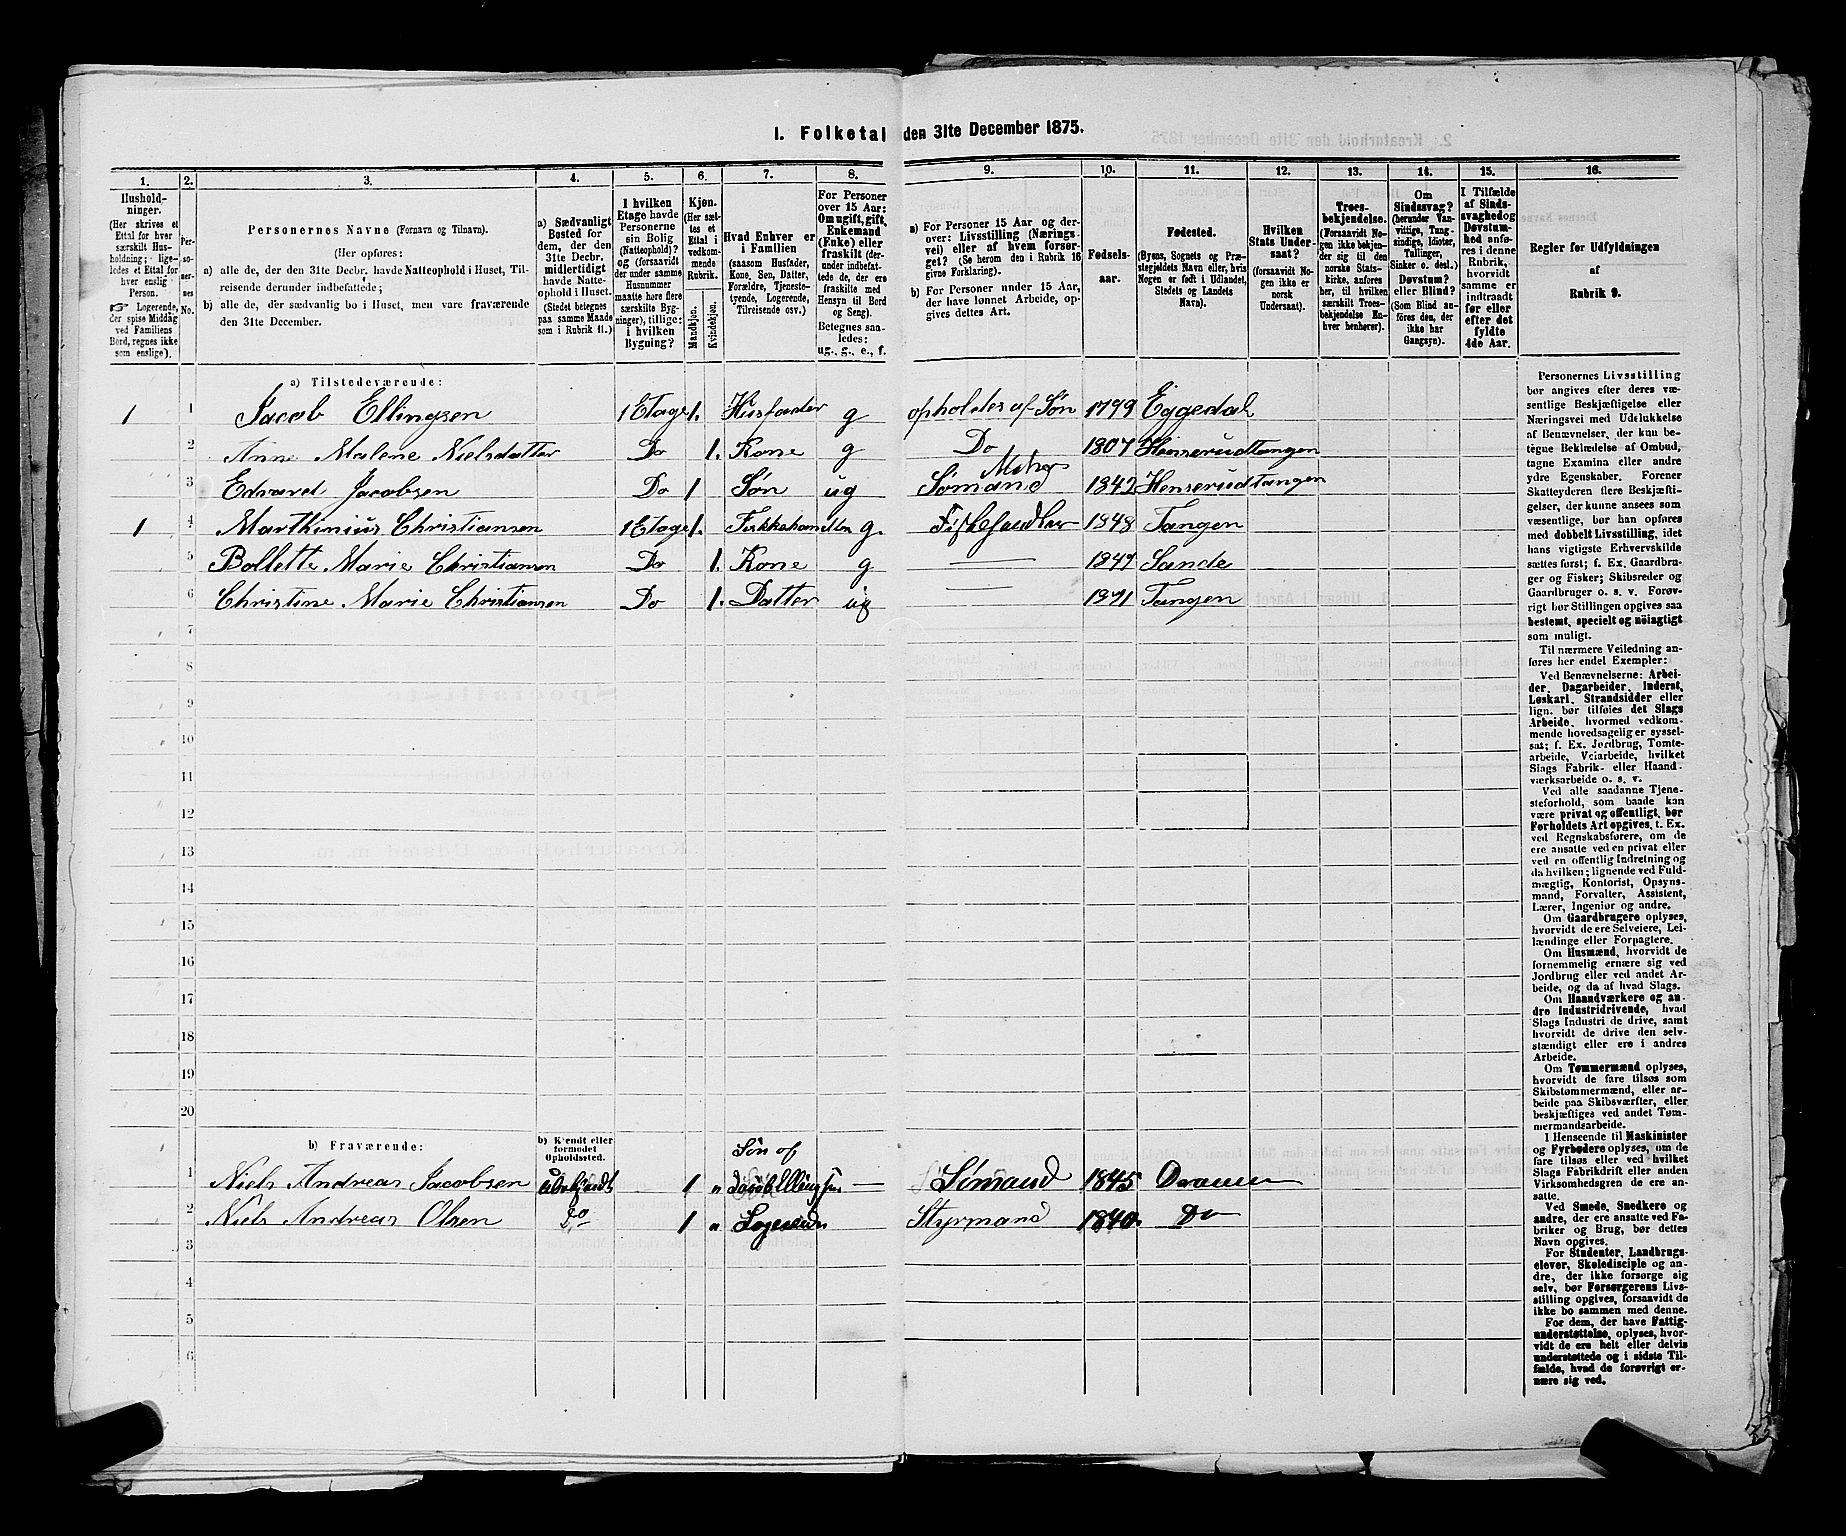 I. Folketal den 31te December 1875.
1. 2. 3. 4. 5. 6. 7. 8. 9. 10. 11. 12. 13. 14. 15. 16.
Husholdninger.
(Her skrives et
Ettal for hver
særskilt Husholdning;
ligeledes et Ettal for
hver enslig
Person.
☞ Logerende,
der spise Middag
ved Familiens
Bord, regnes ikke
som enslige).
Personernes No.
Personernes Navne (Fornavn og Tilnavn).
(Her opføres:
a) alle de, der den 31te Decbr. havde Natteophold i Huset, Tilreisende derunder indbefattede;
b) alle de, der sædvanlig bo i Huset, men vare fraværende
den 31te December.
a) Sædvanligt
Bosted for
dem, der den
31te Decbr.
midlertidigt
havde Natteophold i Huset.
(Stedet betegnes
paa samme Maade
som i Rubrik 11.)
I hvilken
Etage havde
Personerne
sin Bolig
(Natteophold)?
og (forsaavidt
der under samme
Husnummer
maatte høre flere
særskilte Bygninger), tillige:
i hvilken
Bygning?
Kjøn.
(Her sættes
et Ettal i
vedkommende
Rubrik.
Mandkjøn.
Kvindekjøn.
Hvad Enhver er
i Familien
(saasom Husfader,
Kone, Søn, Datter,
Forældre, Tjenestetyende, Logerende,
Tilreisende osv.)
For Personer
over 15 Aar:
Om ugift, gift,
Enkemand
(Enke) eller
fraskilt (derunder indbefattede de, der ere
fraskilte med
Hensyn til Bord
og Seng).
Betegnes saaledes:
ug., g., e., f.
a) For Personer 15 Aar og derover: Livsstilling (Næringsvei) eller af hvem forsørget? (Se herom den i Rubrik 16
givne Forklaring).
b) For Personer under 15 Aar,
der have lønnet Arbeide, opgives dettes Art.
Fødselsaar.
Fødested.
(Byens, Sognets og Præstegjeldets Navn eller, hvis
Nogen er født i Udlandet,
Stedets og Landets
Navn).
Hvilken
Stats Undersaat?
(forsaavidt Nogen ikke er
norsk
Undersaat).
Troesbekjendelse.
(Forsaavidt Nogen ikke bekjender sig til den
norske Statskirke, anføres
her, til hvilken
særskilt Troesbekjendelse Enhver henhører).
Om
Sindssvag?
(herunder Vanvittige, Tungsindige, Idioter,
Tullinger,
Sinker o. desl.)
Døvstum?
eller Blind?
(Som Blind anføres den, der
ikke har
Gangsyn).
I Tilfælde
af Sindssvaghed og
Døvstumhed anføres i denne
Rubrik,
hvorvidt
samme er
indtraadt
før eller
efter det
fyldte
4de Aar.
Regler for Udfyldningen
af
Rubrik 9.
a) Tilstedeværende:
1 1 Jacob Ellingsen 1 Etage 1. Husfader g opholdes af Søn 1799 Eggedal
2 Anne Malene Nielsdatter Do 1. Kone g Do 1807 Henserudtangen
3 Edvard Jacobsen Do 1 Søn ug Sømand 1842 Henserudtangen
1 4 Marthinius Christiansen 1 Etage 1. Fiskehandler g. Fiskehandler 1848 Tangen
5 Bollette Marie Christiansen Do 1. Kone g — 1847 Sande
6 Christine Marie Christiansen Do 1. Datter ug — 1871 Tangen
7
8
9
10
11
12
13
14
15
16
17
18
19
20
b) Fraværende:
b) Kjendt eller
formodet
Opholdssted.
Søn af
1 Niels Andreas Jacobsen ubekjendt 1 " Jacob Ellingsen — Sømand 1845 Drammen
2 Niels Andreas Olsen Do 1 " Logerende Styrmand 1840 Do
3
4
5
6
Personernes Livsstilling
bør angives efter deres væsentlige Beskjæftigelse eller
Næringsvei med Udelukkelse
af Benævnelser, der kun betegne Beklædelse af Ombud,
tagne Examina eller andre
ydre Egenskaber. Forener
Skatteyderen flere Beskjæftigelser, der kunne ansees som
væsentlige, bør han opføres
med dobbelt Livsstilling, idet
hans vigtigste Erhvervskilde
sættes først; f. Ex. Gaardbruger og Fisker; Skibsreder og
Gaardbruger o. s. v. Forøvrigt bør Stillingen opgives saa
bestemt, specielt og nöiagtigt
som muligt.
Til nærmere Veiledning anføres her endel Exempler:
Ved Benævnelserne: Arbeider, Dagarbeider, Inderst,
Løskarl, Strandsidder eller
lign. bør tilføies det Slags
Arbeide, hvormed vedkommende hovedsagelig er sysselsat; f. Ex. Jordbrug, Tomtearbeide, Veiarbeide, hvilket
Slags Fabrik- eller Haandværksarbeide o. s. v.
Ved alle saadanne Tjenesteforhold, som baade kan
være privat og offentligt, bør
Forholdets Art opgives, t. Ex.
ved Regnskabsførere, om de
ere ansatte ved en privat eller
ved en offentlig Indretning og
da hvilken; lignende ved Fuldmægtig, Kontorist, Opsynsmand, Forvalter, Assistent,
Lærer, Ingeniør og andre.
Om Gaardbrugere oplyses,
hvorvidt de ere Selveiere, Leilændinge eller Forpagtere.
Om Husmænd, hvorvidt de
fornemmelig ernære sig ved
Jordbrug eller ved andet Arbeide, og da af hvad Slags.
Om Haandværkere og andre Industridrivende, hvad
Slags Industri de drive, samt
hvorvidt de drive den selvstændigt eller ere i andres
Arbeide.
Om Tømmermænd oplyses,
hvorvidt de fare tilsøs som
Skibstømmermænd, eller arbeide paa Skibsværfter, eller
beskjæftiges ved andet Tømmermandsarbeide.
I Henseende til Maskinister
og Fyrbødere oplyses, om de
fare tilsøs eller ved hvilket
Slags Fabrikdrift eller anden
Virksomhedsgren de ere ansatte.
Ved Smede, Snedkere og
andre, der ere ansatte ved Fabriker og Brug, bør dettes
Navn opgives.
For Studenter, Landbrugselever, Skoledisciple og andre, der ikke forsørge sig
selv, bør Forsørgerens Livsstilling opgives, forsaavidt de
ikke bo sammen med denne.
For dem, der have Fattigunderstøttelse, oplyses, hvorvidt de ere helt eller delvis
understøttede og i sidste Tilfælde, hvad de forøvrigt ernære sig ved.